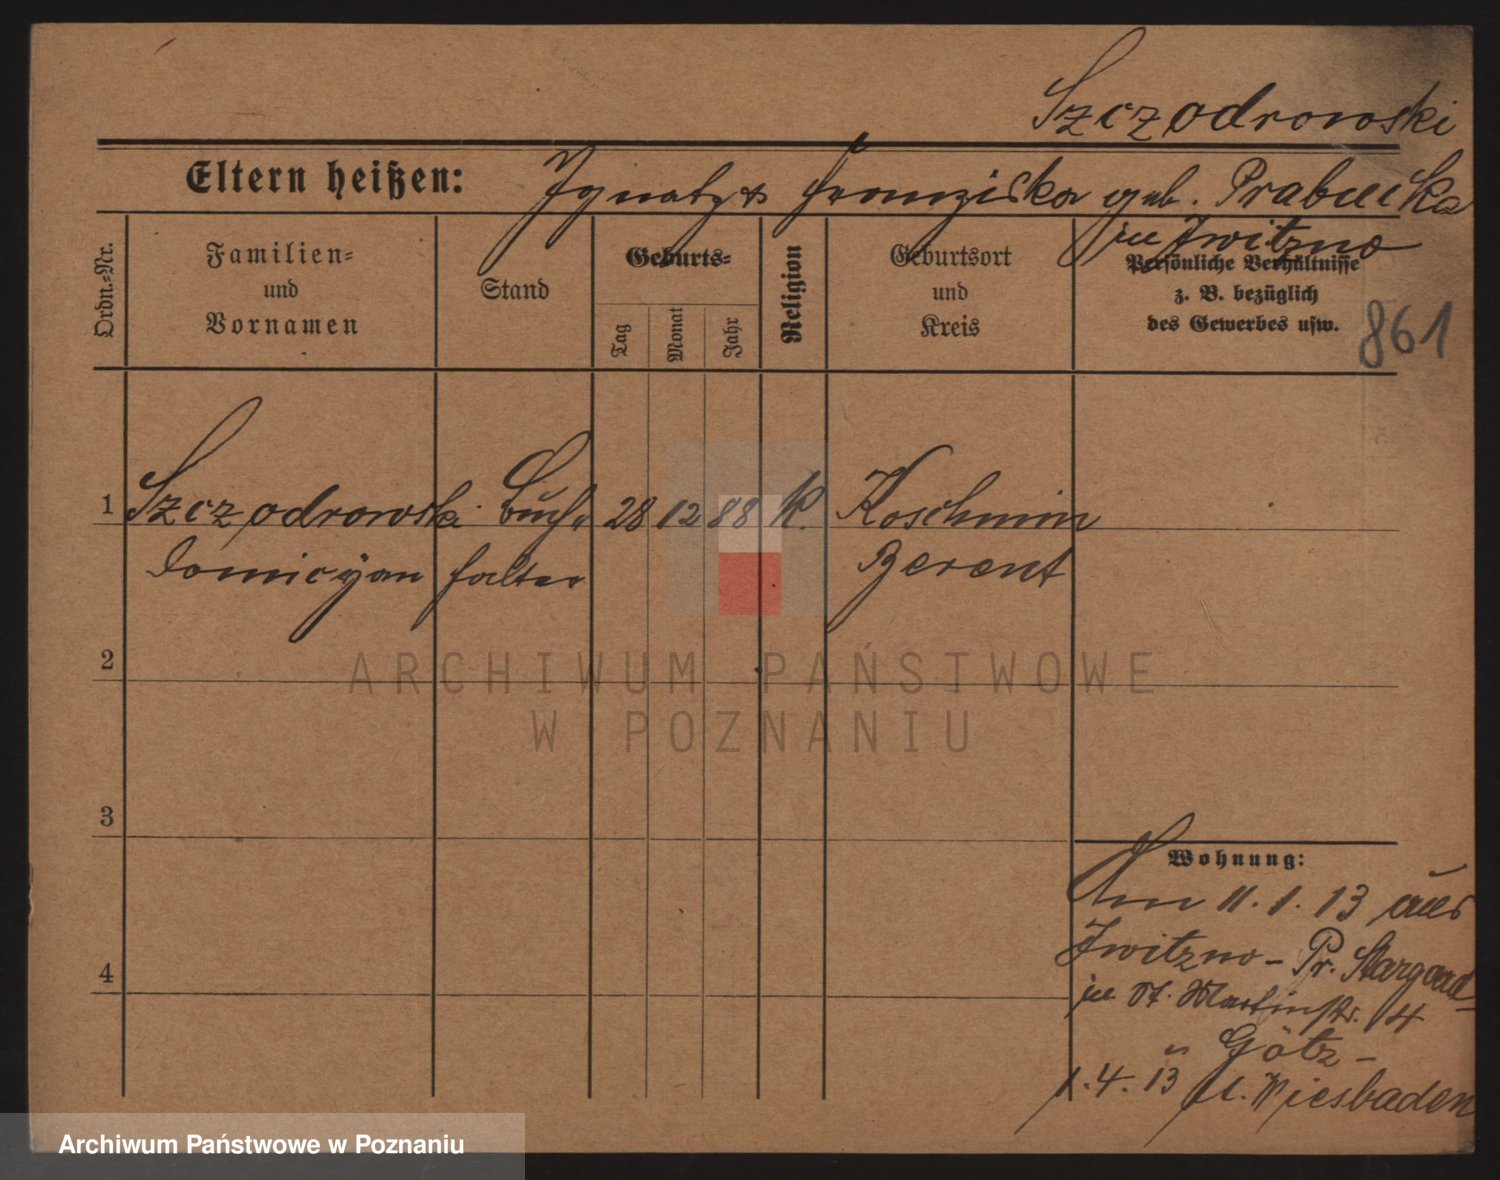 Szczodrowski
Eltern heißen: Ignatz & Franziska geb. Prabucka
in Zwitzno
Ordn.-Nr.
Familien-
und
Vornamen
Stand
Geburts-
Tag
Monat
Jahr
Religion
Geburtsort
und
Kreis
Persönliche Verhältnisse
z. B. bezüglich
des Gewerbes usw.
861
1 Szczodrowski Buch 28 12 88 K. Koschmin
Domicyan halter Berent
2
3
4
Wohnung:
Am 11.1.13 aus
Zwitzno - Pr. Stargard
in St. Martinstr. 14
Götz -
1.4.13 n. Wiesbaden
ARCHIWUM PAŃSTWOWE
W POZNANIU
Archiwum Państwowe w Poznaniu